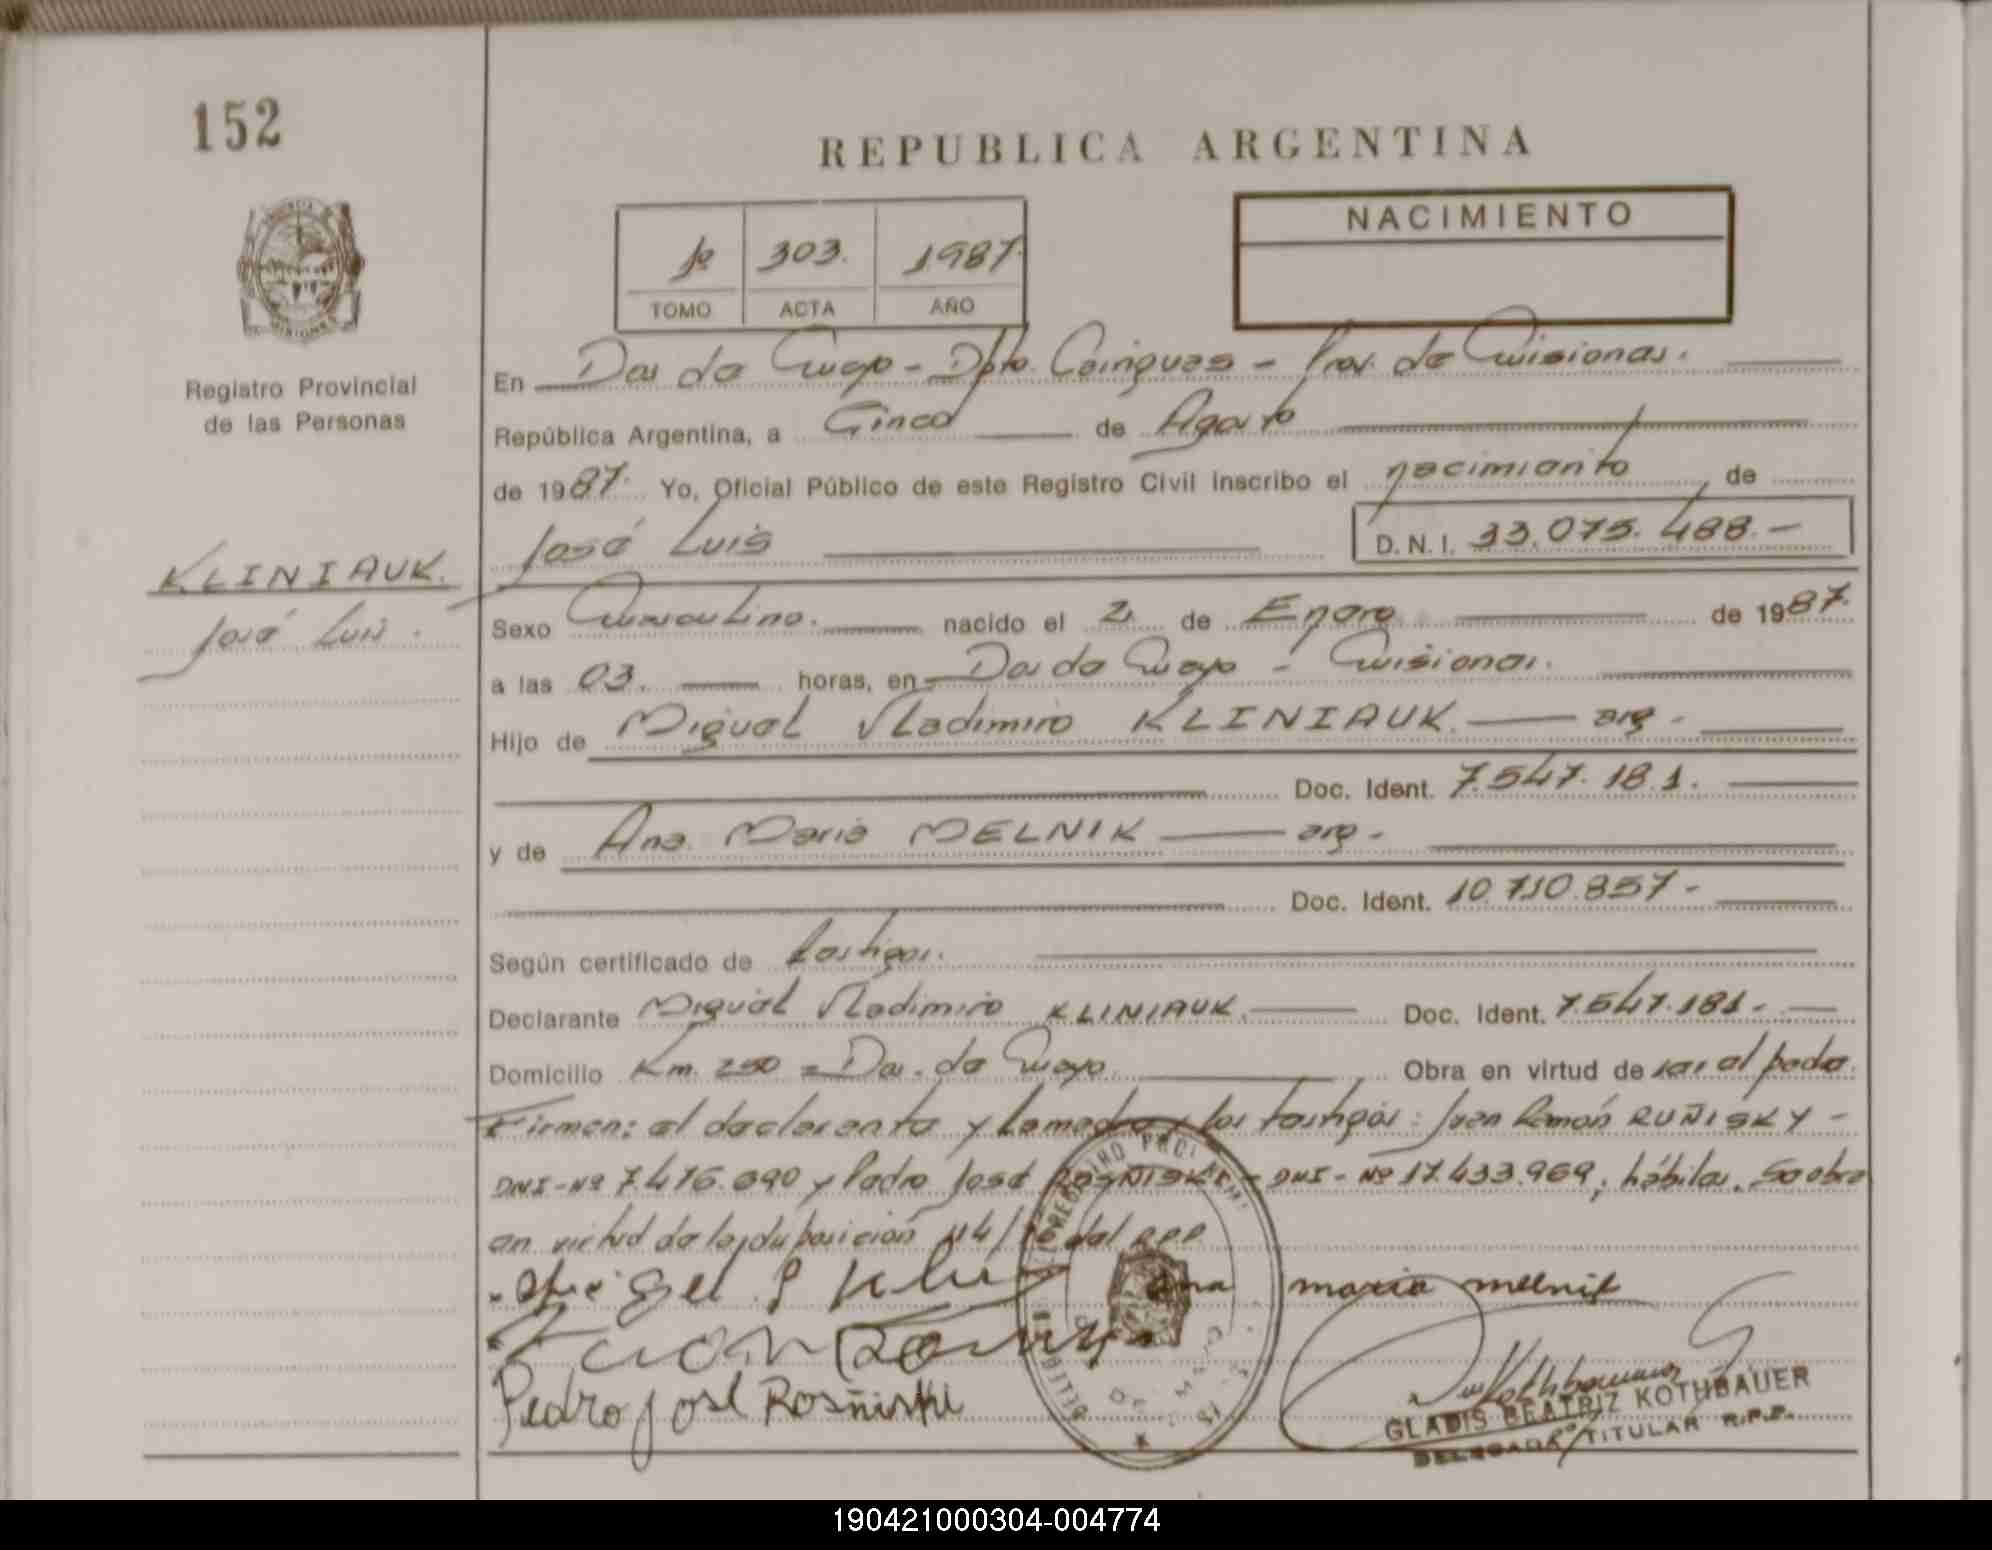 152
REPUBLICA ARGENTINA
NACIMIENTO
1º 303. 1987.
TOMO ACTA AÑO
Registro Provincial
de las Personas
En Dos de Mayo - Dpto. Cainguas - Prov. de Misiones.
República Argentina, a Cinco de Agosto
de 1987. Yo, Oficial Público de este Registro Civil inscribo el nacimiento, de
José Luis D.N.I. 33.075.488.-
KLINIAUK.
José Luis.
Sexo Masculino. nacido el 2 de Enero de 1987.
a las 03. horas, en Dos de Mayo - Misiones.
Hijo de Miguel Vladimiro KLINIAUK. arg-
Doc. Ident. 7.547.181.
y de Ana Maria MELNIK arg-
Doc. Ident. 10.710.857-
Según certificado de testigos.
Declarante Miguel Vladimiro KLINIAUK. Doc. Ident. 7.547.181.-
Domicilio Km. 250 = Dos. de Mayo. Obra en virtud de ser el padre.
Firman: el declarante y la madre y los testigos: Juan Ramón RUÑISKY -
DNI-Nº 7.476.090 y Pedro José ROSÑISKI - DNI-Nº 17.433.969, hábiles. Se obra
en virtud de la disposición 114/ del RPP
Ana maria melnik
Pedro José Rosñiski
GLADIS BEATRIZ KOTHBAUER
DELEGADA TITULAR R.P.P.
190421000304-004774